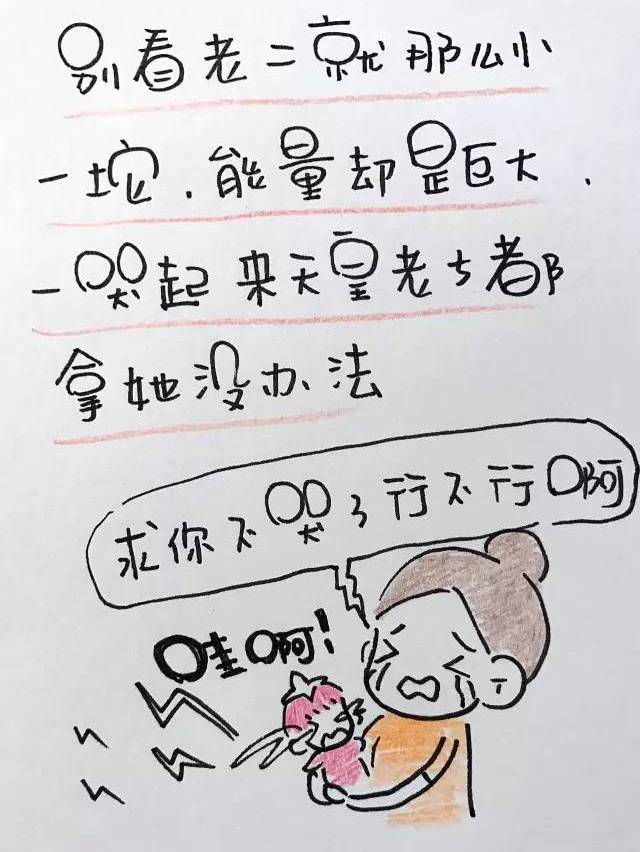 别看老二就那么小
一坨.能量却是巨大.
一哭起来天皇老子都
拿她没办法
求你不哭了行不行啊
哇啊!